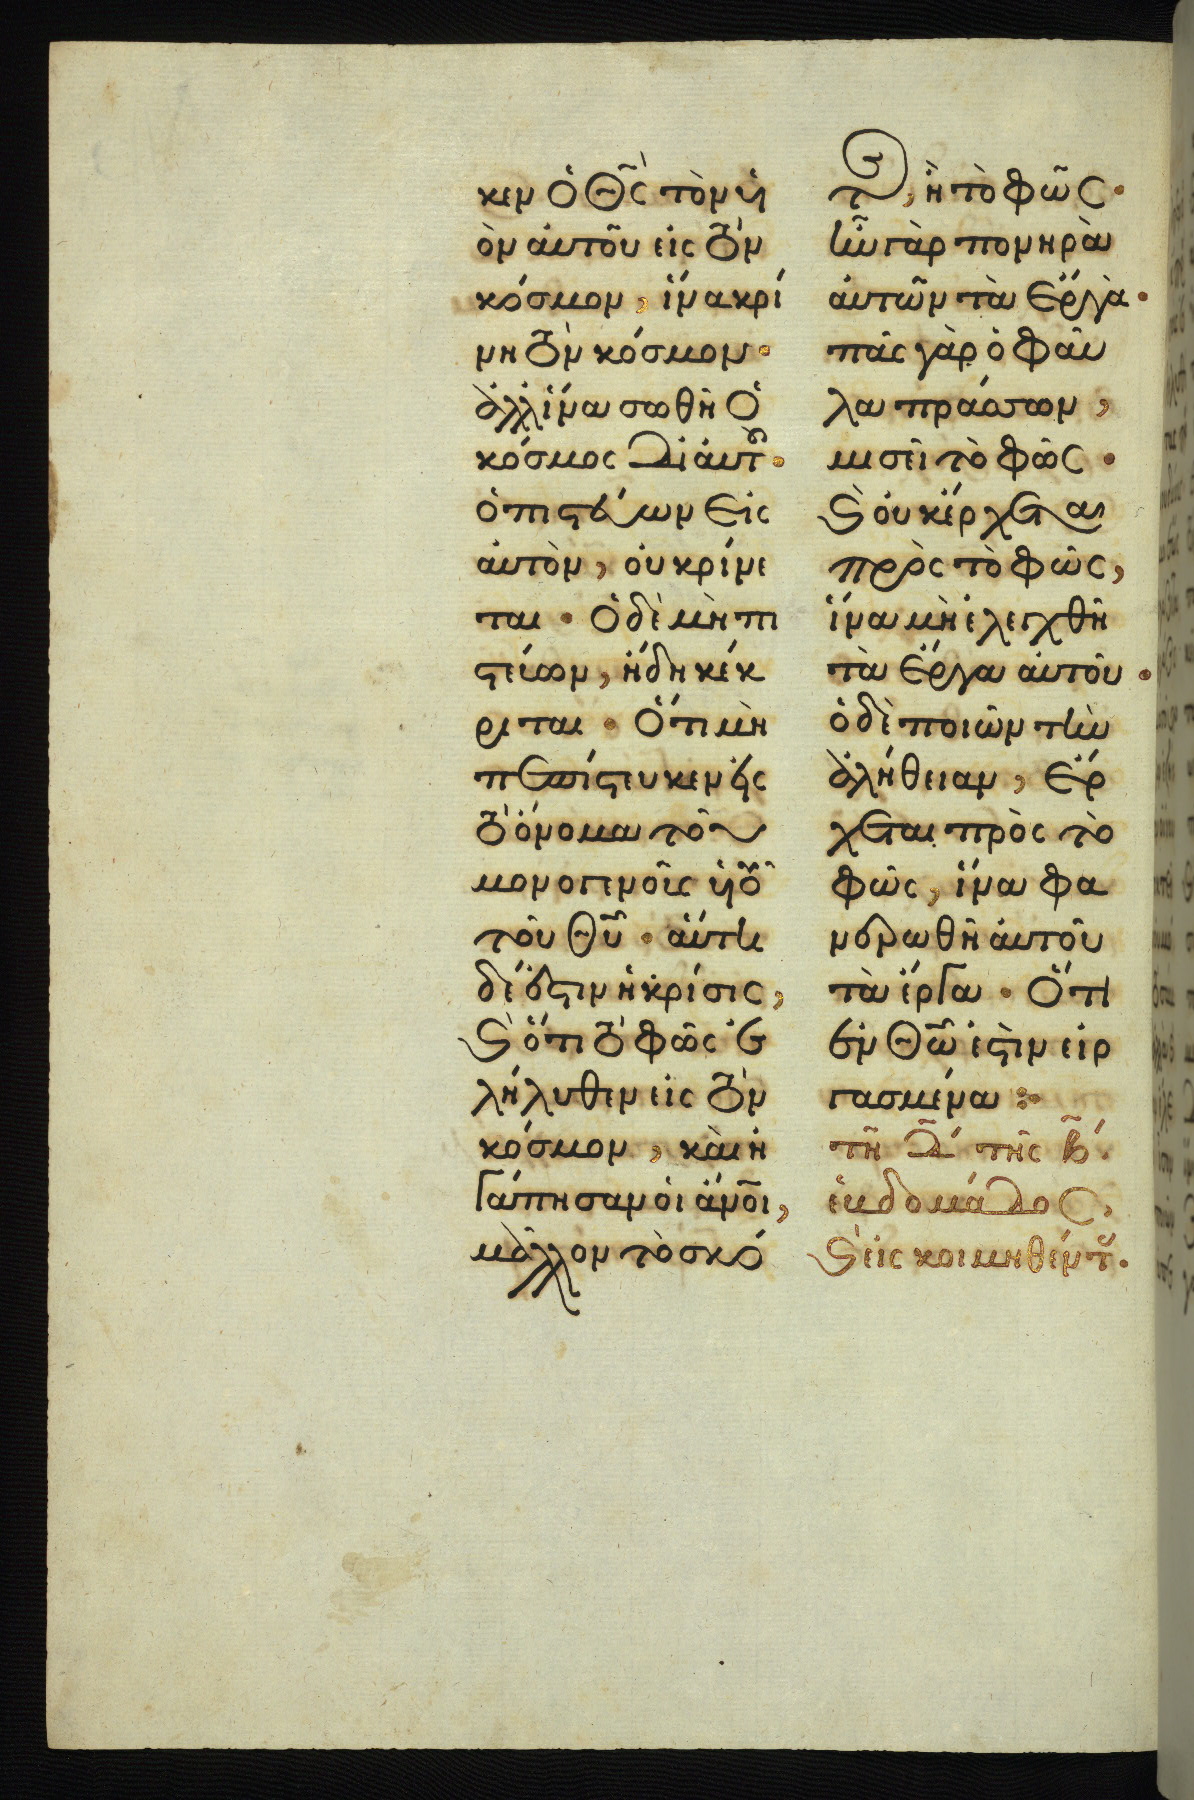 κεν ὁ Θ̅ς̅ τὸν ὑι
ὸν ἀυτοῦ εἰς τὸν
κόσμον, ἵνα κρί
νη τὸν κόσμον·
ἀλλ ἵνα σωθῆ ὁ
κόσμος δι ἀυτοῦ·
ὁ πιστεύων εἰς
ἀυτὸν, οὐ κρίνε
ται · Ὁ δὲ μὴ πι
στεύων, ἤδη κέκ
ριται · Ὅτι μὴ
πεπίστευκεν εἰς
τὸ ὄνομα τοῦ
μονογενοῦς ὑιοῦ
τοῦ Θ̅υ̅ · ἅυτη
δέ ἐστιν ἡ κρίσις,
ϛ ὅτι τὸ φῶς ἐ
λήλυθεν εἰς τὸν
κόσμον, καὶ ἠ
γάπησαν οἱ ἄν̅ο̅ι̅,
μᾶλλον τὸ σκό
τος, ἢ τὸ φῶς ·
ἦν γὰρ πονηρὰ
ἀυτῶν τὰ ἔργα ·
πᾶς γὰρ ὁ φαῦ
λα πράσσων,
μισεῖ τὸ φῶς ·
ϛ οὐκ έρχεται
πρὸς τὸ φῶς,
ἵνα μὴ ἐλεγχθῆ
τὰ έργα ἀυτοῦ ·
ὁ δὲ ποιῶν τὴν
ἀλήθειαν, έρ
χεται πρὸς τὸ
φῶς, ἵνα φα
νερωθῆ ἀυτοῦ
τὰ έργα · Ὅτι
ἐν Θ̅ῶ̅ ἐστὶν εἰρ
γασμένα :·
τῆ δ̅ τῆς β̅
ἑυδομάδος,
ϛ εἰς κοιμηθέντ̅.